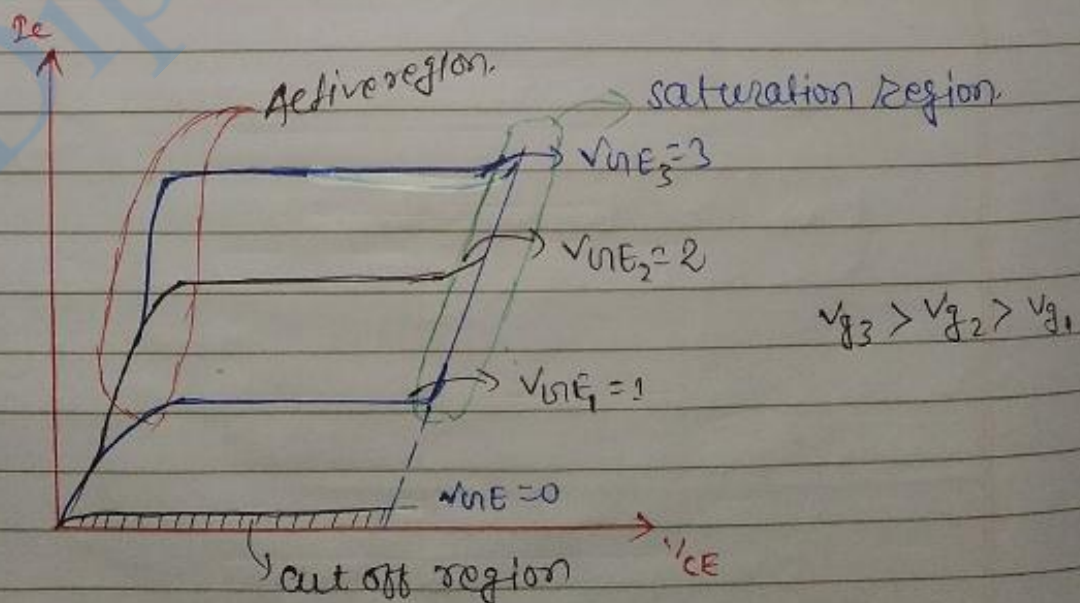 Ic
Active region.
saturation region.
VGE₃=3
VGE₂=2
Vg₃ > Vg₂ > Vg₁
VGE₁=1
VGE=0
VCE
cut off region